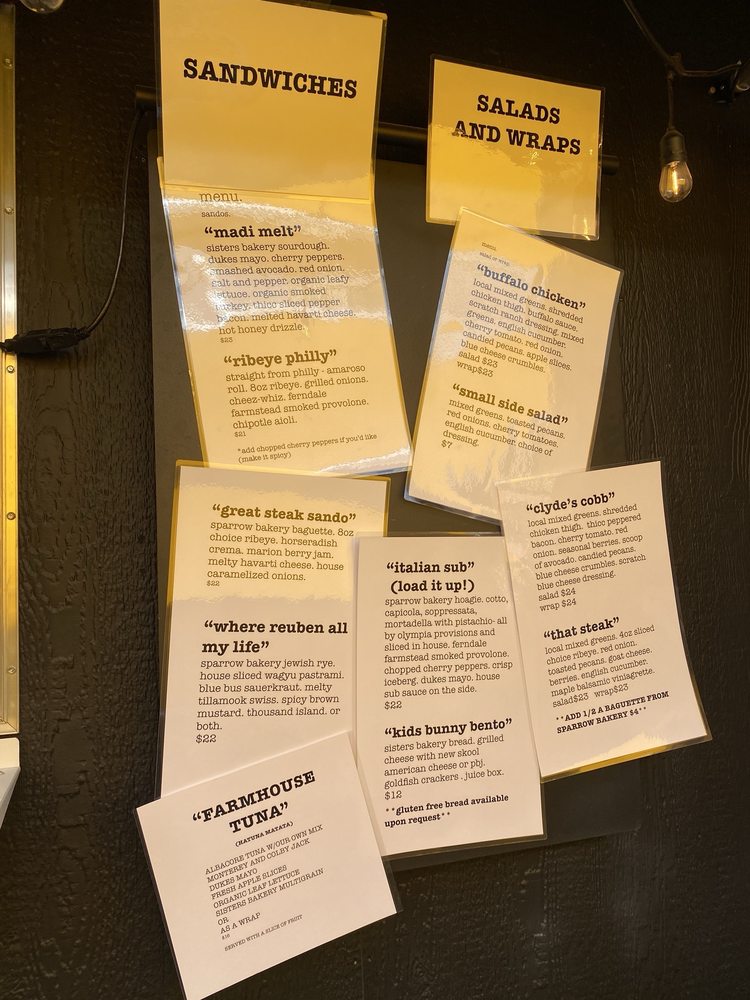 SANDWICHES
menu.
sandos.
"madi melt"
sisters bakery sourdough.
dukes mayo. cherry peppers.
smashed avocado. red onion.
salt and pepper. organic leafy
lettuce. organic smoked
turkey. thicc sliced pepper
bacon. melted havarti cheese.
hot honey drizzle.
$23
"ribeye philly"
straight from philly - amaroso
roll. 8oz ribeye. grilled onions.
cheez-whiz. ferndale
farmstead smoked provolone.
chipotle aioli.
$21
*add chopped cherry peppers if you'd like
(make it spicy)
"great steak sando"
sparrow bakery baguette. 8oz
choice ribeye. horseradish
crema. marion berry jam.
melty havarti cheese. house
caramelized onions.
$22
"where reuben all
my life"
sparrow bakery jewish rye.
house sliced wagyu pastrami.
blue bus sauerkraut. melty
tillamook swiss. spicy brown
mustard. thousand island. or
both.
$22
"FARMHOUSE
TUNA"
(HATUNA MATATA)
ALBACORE TUNA W/OUR OWN MIX
MONTEREY AND COLBY JACK
DUKES MAYO
FRESH APPLE SLICES
ORGANIC LEAF LETTUCE
SISTERS BAKERY MULTIGRAIN
OR
AS A WRAP
SERVED WITH A SLICE OF FRUIT
"italian sub"
(load it up!)
sparrow bakery hoagie. cotto,
capicola, soppressata,
mortadella with pistachio- all
by olympia provisions and
sliced in house. ferndale
farmstead smoked provolone.
chopped cherry peppers. crisp
iceberg. dukes mayo. house
sub sauce on the side.
$22
"kids bunny bento"
sisters bakery bread. grilled
cheese with new skool
american cheese or pbj.
goldfish crackers . juice box.
$12
**gluten free bread available
upon request**
SALADS
AND WRAPS
menu.
salad or wrap.
"buffalo chicken"
local mixed greens. shredded
chicken thigh. buffalo sauce.
scratch ranch dressing. mixed
greens. english cucumber.
cherry tomato. red onion.
candied pecans. apple slices.
blue cheese crumbles.
salad $23
wrap$23
"small side salad"
mixed greens. toasted pecans.
red onions. cherry tomatoes.
english cucumber. choice of
dressing.
$7
"clyde's cobb"
local mixed greens. shredded
chicken thigh. thicc peppered
bacon. cherry tomato. red
onion. seasonal berries. scoop
of avocado. candied pecans.
blue cheese crumbles. scratch
blue cheese dressing.
salad $24
wrap $24
"that steak"
local mixed greens. 4oz sliced
choice ribeye. red onion.
toasted pecans. goat cheese.
berries. english cucumber.
maple balsamic viniagrette.
salad$23 wrap$23
**ADD 1/2 A BAGUETTE FROM
SPARROW BAKERY $4**